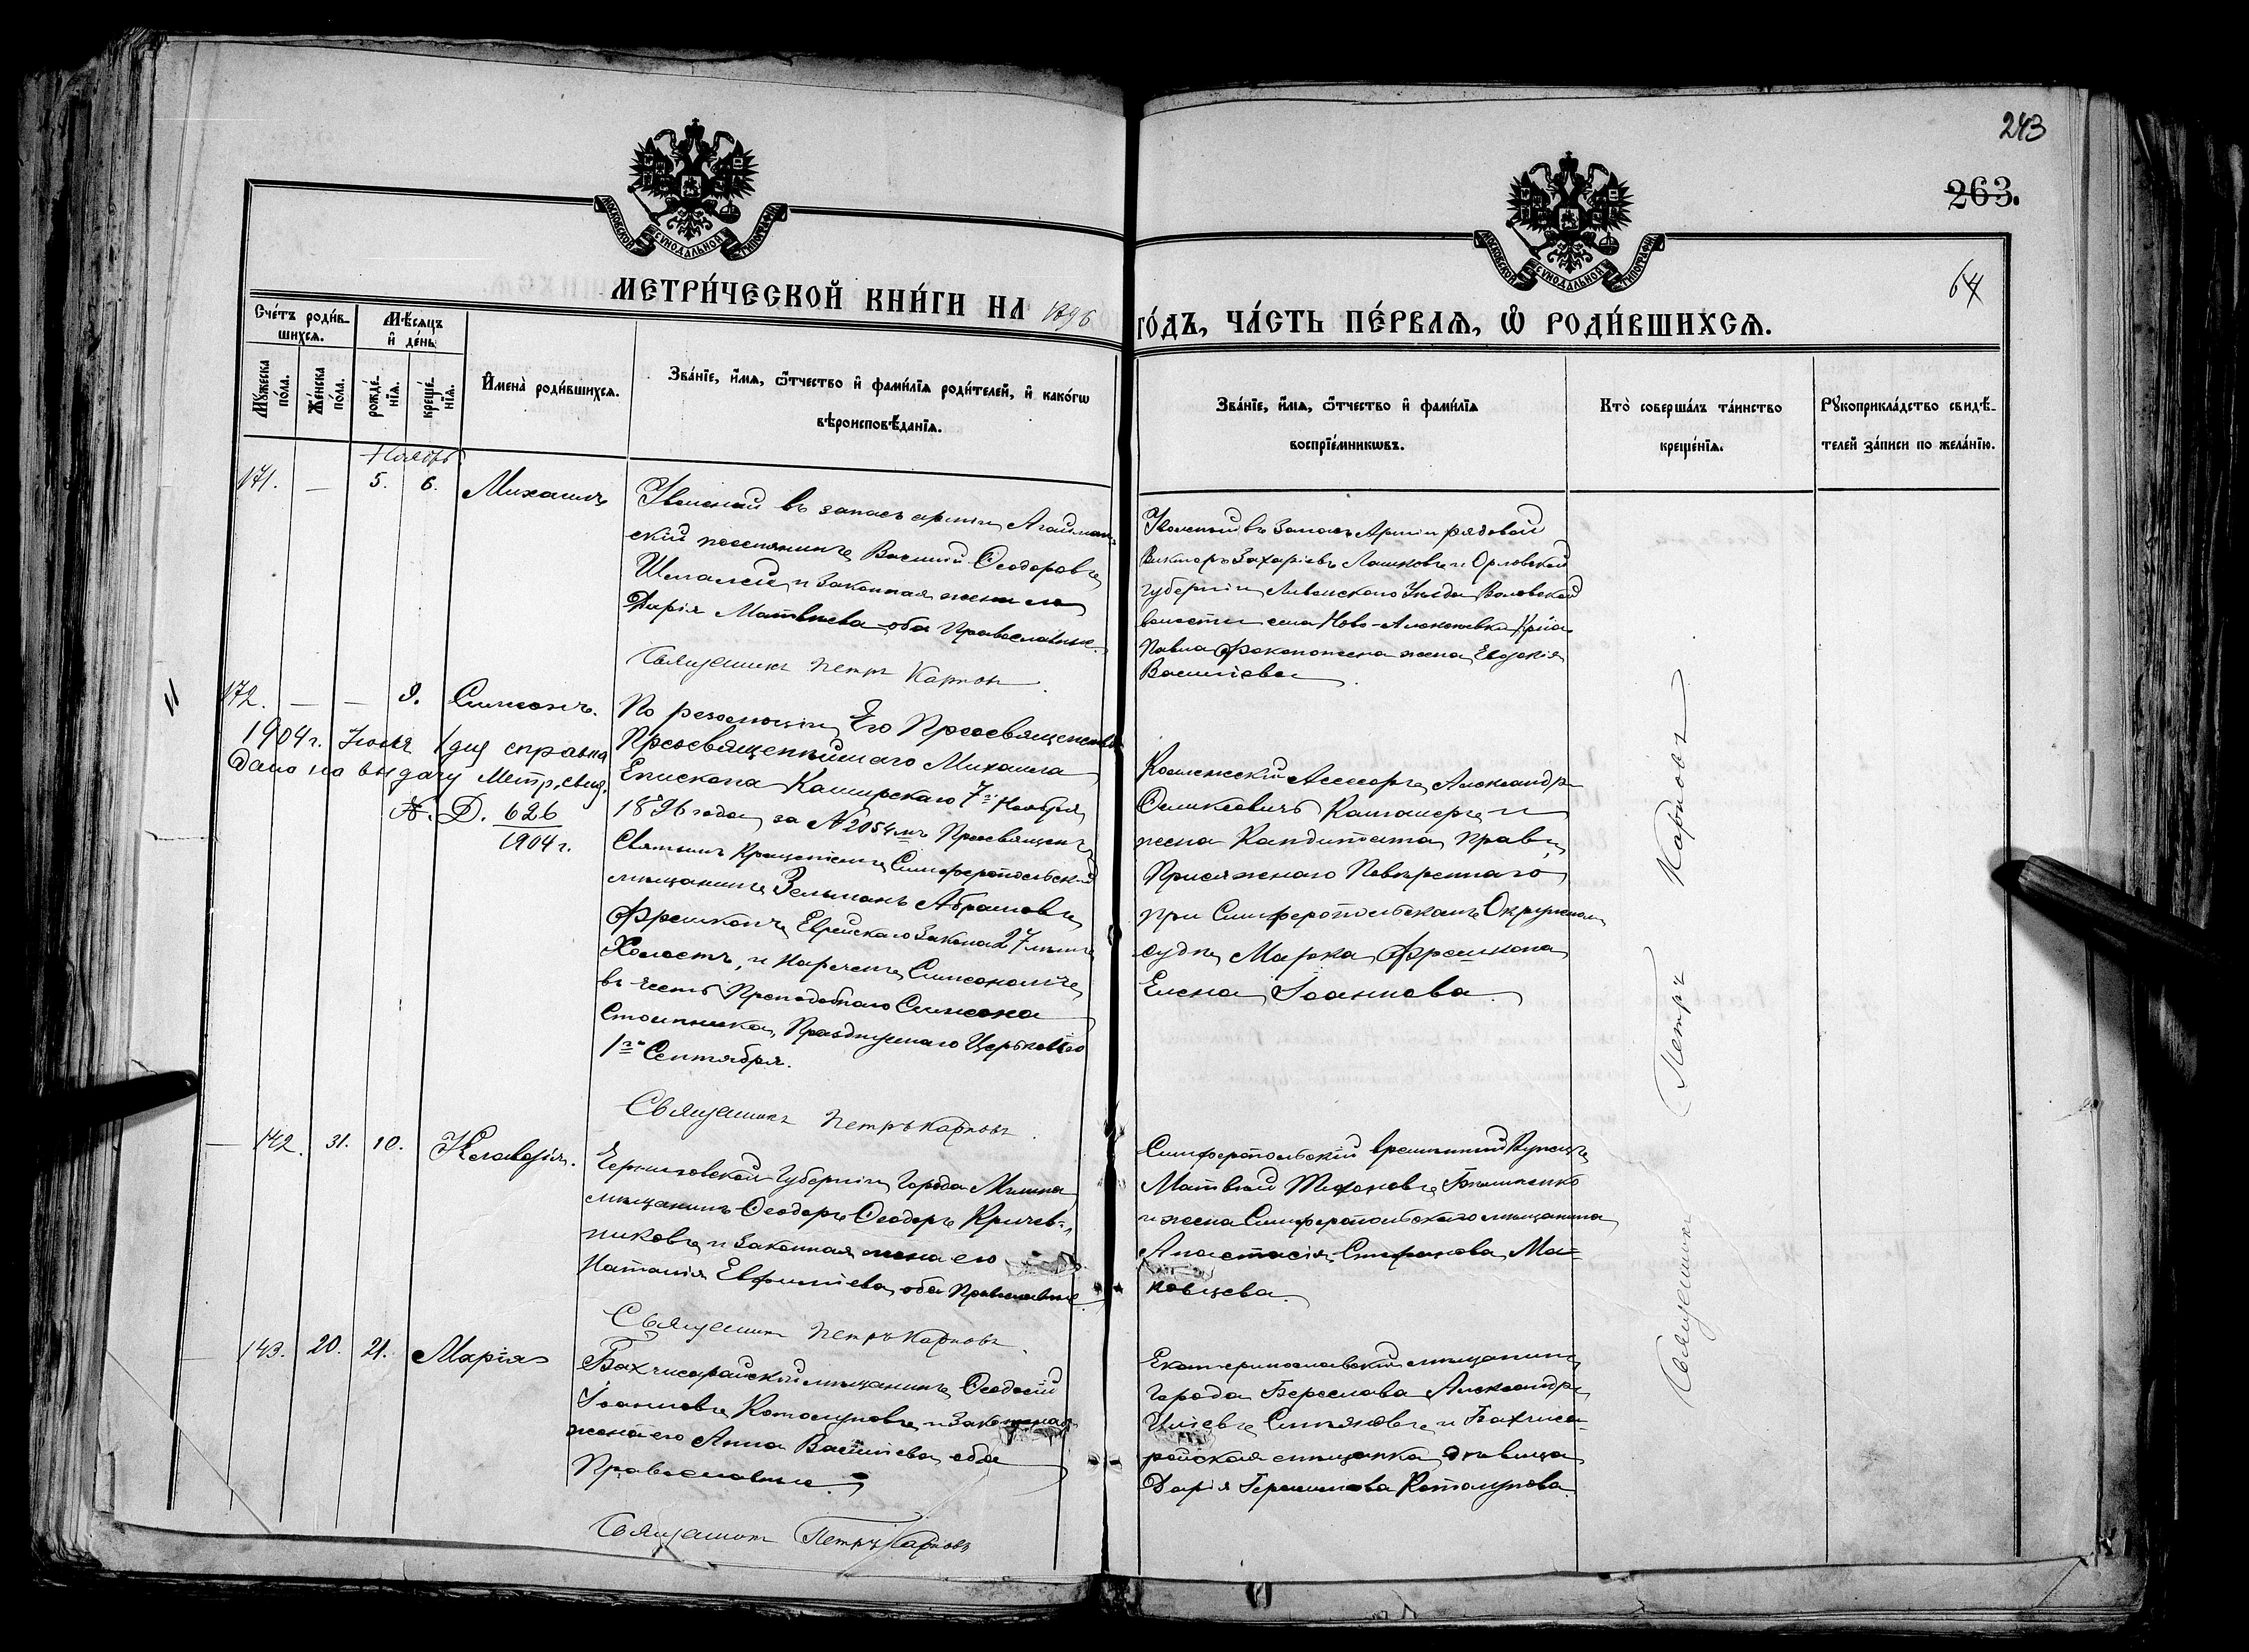 243
263.
64
МОСКОВСКОЙ СѴНОДАЛЬНОЙ ТИПОГРАФІИ
МОСКОВСКОЙ СѴНОДАЛЬНОЙ ТИПОГРАФІИ
МЕТРИ́ЧЕСКОЙ КНИ́ГИ НА 1896
ГО́ДЪ, ЧА́СТЬ ПЕ́РВАѦ, Ѽ РОДИ́ВШИХСѦ.
Сче́тъ роди́в-
шихсѧ.
Мѣ́сѧцъ
и҆ де́нь
Мꙋ́жеска
по́ла.
Же́нска
по́ла.
рожде́-
нїѧ.
креще́-
нїѧ.
И҆мена̀ роди́вшихсѧ.
Зва́нїе, и҆́мѧ, ѻ҆́тчество и҆ фами́лїѧ роди́телей, и҆ како́гѡ
вѣроисповѣ́данїѧ.
Зва́нїе, и҆́мѧ, ѻ҆́тчество и҆ фами́лїѧ
воспрїе́мникѡвъ.
Кто̀ соверша́лъ та́инство
креще́нїѧ.
Рꙋкоприкла́дство свидѣ́-
телей за́писи по жела́нїю.
Ноябрь
171. — 5. 6. Михаилъ
Уволенный въ запасъ арміи Агайман-
скій поселянинъ Василій Ѳеодоровъ
и законная жена его
Дарія Матвѣева оба Православные.
Священникъ Петръ Карповъ.
Уволенный въ Запасъ Арміи рядовой
Викторъ Захаріевъ Лашковъ и Орловской
губерніи Ливенскаго Уѣзда Воловской
волости села Ново-Алексеевки Кр-на
Павла жена Евдокія
Василіева.
172. — — 8. Симеонъ.
1904 г. Іюля 1 дня справка
дана на выдачу Метр. свид.
А. Д. 626
1904 г.
По резолюціи Его Преосвященства
Преосвященнѣйшаго Михаила
Епископа Каширскаго 7го Ноября
1896 года за № 2054мъ Просвященъ
Святымъ Крещеніемъ Симферопольскій
мѣщанинъ Зельманъ Абрамовъ
Френкель Еврейскаго Закона 27 лѣтъ
Холостъ, и нареченъ Симеономъ
въ честь Преподобнаго Симеона
Столпника, Празднуемаго Церковію
1го Сентября.
Священникъ Петръ Карповъ.
Коллежскій Ассесоръ Александръ
Феликсовичъ и
жена Кандидата Правъ,
Присяжнаго Повѣреннаго
при Симферопольскомъ Окружномъ
судѣ Марка
Елена Іоаннова.
— 142. 31. 10. Клавдія.
Черниговской Губерніи Города Мглина
мѣщанинъ Ѳеодоръ Ѳеодоръ Кричев-
никовъ и законная жена его
Наталія Евфиміева, оба Православные.
Священникъ Петръ Карповъ.
Симферопольскій временный Купецъ
Матвѣй Тихоновъ
и жена Симферопольскаго мѣщанина
Анастасія Стефанова Ма-
ковцева.
— 143. 20. 21. Марія
Бахчисарайскій мѣщанинъ Ѳеодосій
Іоанновъ Котолуповъ и законная
жена его Анна Василіева, оба
Православные.
Священникъ Петръ Карповъ
Екатеринославскій мѣщанинъ
Города Береслава Александръ
Иліевъ и Бахчиса-
райская мѣщанка дѣвица
Дарія Герасимова Котолупова.
Священникъ Петръ Карповъ